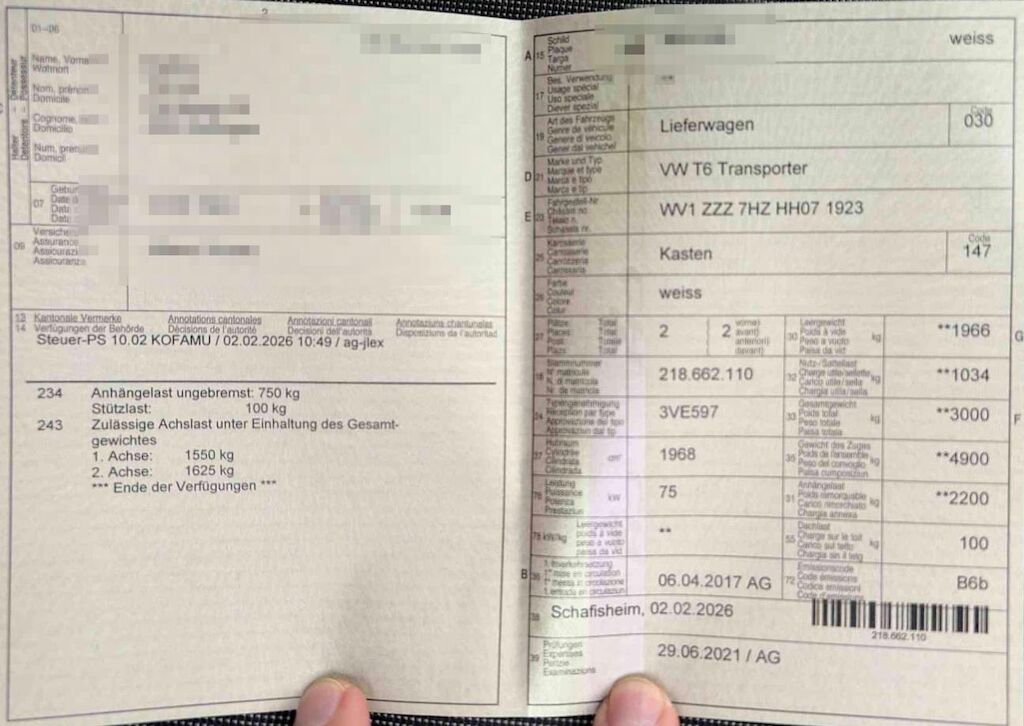 2
01-06
Halter Détenteur
Detentore Possessur
Name, Vorna
Wohnort
Nom, prénom
Domicile
Cognome,
Domicilio
Num, pren
Domicil
07
Gebur
Date d
Data
Data
09
Versiche
Assurance
Assicurazi
Assicuranza
13 Kantonale Vermerke Annotations cantonales Annotazioni cantonali Annotaziuns chantunalas
14 Verfügungen der Behörde Décisions de l'autorité Decisioni dell'autorità Disposiziuns da l'autoritad
Steuer-PS 10.02 KOFAMU / 02.02.2026 10:49 / ag-jlex
234 Anhängelast ungebremst: 750 kg
Stützlast: 100 kg
243 Zulässige Achslast unter Einhaltung des Gesamt-
gewichtes
1. Achse: 1550 kg
2. Achse: 1625 kg
*** Ende der Verfügungen ***
A 15 Schild
Plaque
Targa
Numer
weiss
17 Bes. Verwendung
Usage spécial
Uso speciale
Diever spezial
**
19 Art des Fahrzeugs
Genre de véhicule
Genere di veicolo
Gener dal vehichel
Lieferwagen
Code
030
D 21 Marke und Typ
Marque et type
Marca e tipo
Marca e tip
VW T6 Transporter
E 23 Fahrgestell-Nr
Châssis no
Telaio n.
Schassis nr.
WV1 ZZZ 7HZ HH07 1923
25 Karosserie
Carrosserie
Carrozzeria
Carossaria
Kasten
Code
147
26 Farbe
Couleur
Colore
Colur
weiss
27 Plätze Total
Places Total
Posti Totale
Plazs Total
2
2
vorne)
avant)
anteriori)
davant)
30 Leergewicht
Poids à vide
Peso a vuoto
Paisa da vid
kg
**1966
G
18 Stammnummer
N° matricule
N. di matricola
Nr. da matricla
218.662.110
32 Nutz-/Sattellast
Charge utile/sellette
Carico utile/sella
Chargia utila/sella
kg
**1034
24 Typengenehmigung
Réception par type
Approvazione del tipo
Approvaziun dal tip
3VE597
33 Gesamtgewicht
Poids total
Peso totale
Paisa totala
kg
**3000
F
37 Hubraum
Cylindrée
Cilindrata
Cilindrada
cm³
1968
35 Gewicht des Zuges
Poids de l'ensemble
Peso del convoglio
Paisa cumposiziun
kg
**4900
76 Leistung
Puissance
Potenza
Prestaziun
kW
75
31 Anhängelast
Poids remorquable
Carico rimorchiato
Chargia annexa
kg
**2200
78 kW/kg
Leergewicht
poids à vide
peso a vuoto
paisa da vid
**
55 Dachlast
Charge sur le toit
Carico sul tetto
Chargia sin il tetg
kg
100
B 36 1. Inverkehrsetzung
1re mise en circulation
1a messa in circolazione
1. entrada en circulaziun
06.04.2017 AG
72 Emissionscode
Code émissions
Codice emissioni
Code d'emissiuns
B6b
38 Schafisheim, 02.02.2026
218.662.110
39 Prüfungen
Expertises
Perizie
Examinaziuns
29.06.2021 / AG